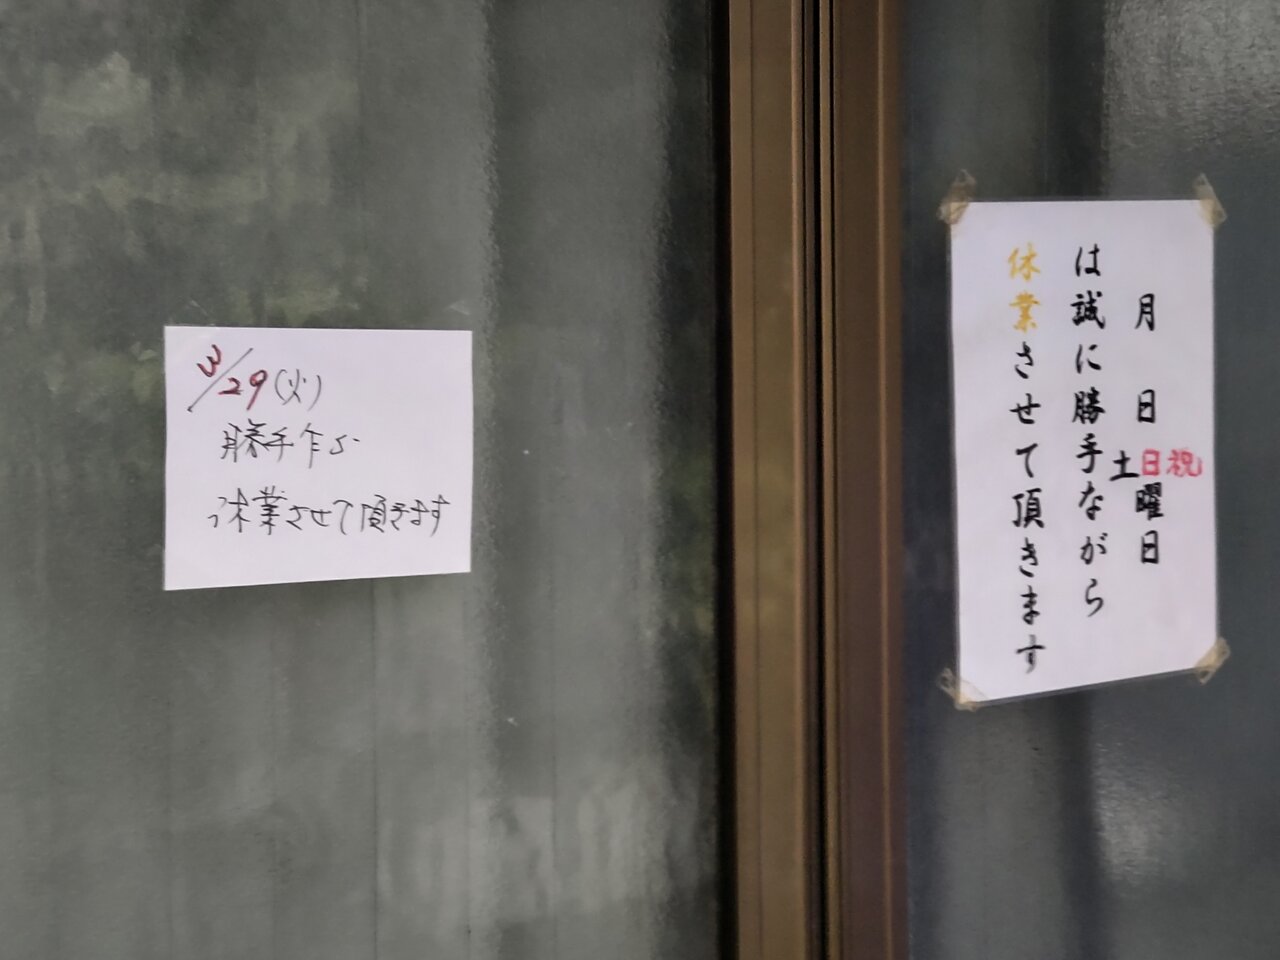 3/29(火)
勝手乍ら
休業させて頂きます
月 日 土日祝曜日
は誠に勝手ながら
休業させて頂きます